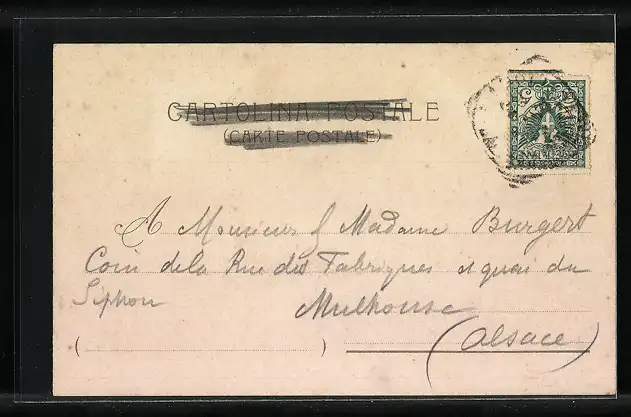 CARTOLINA POSTALE
(CARTE POSTALE)
A Monsieur & Madame Burgert
Coin de la Rue des Fabriques et quai du
Siphon
Mulhouse
(Alsace)